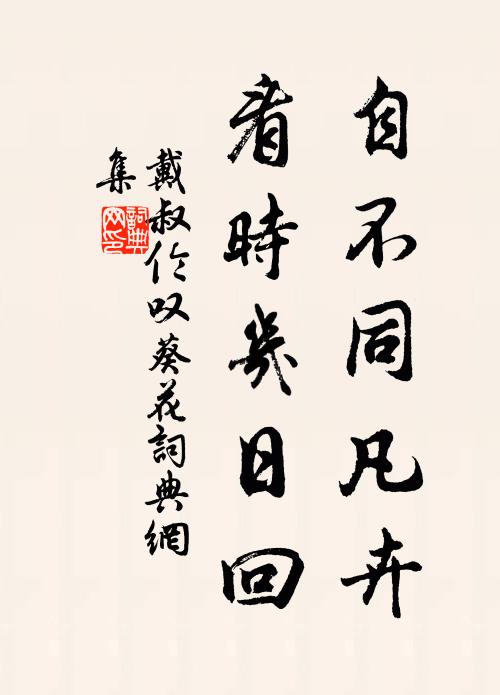 自不同凡卉
看時幾日回
戴叔伦叹葵花詞典網
集
詞典
网印